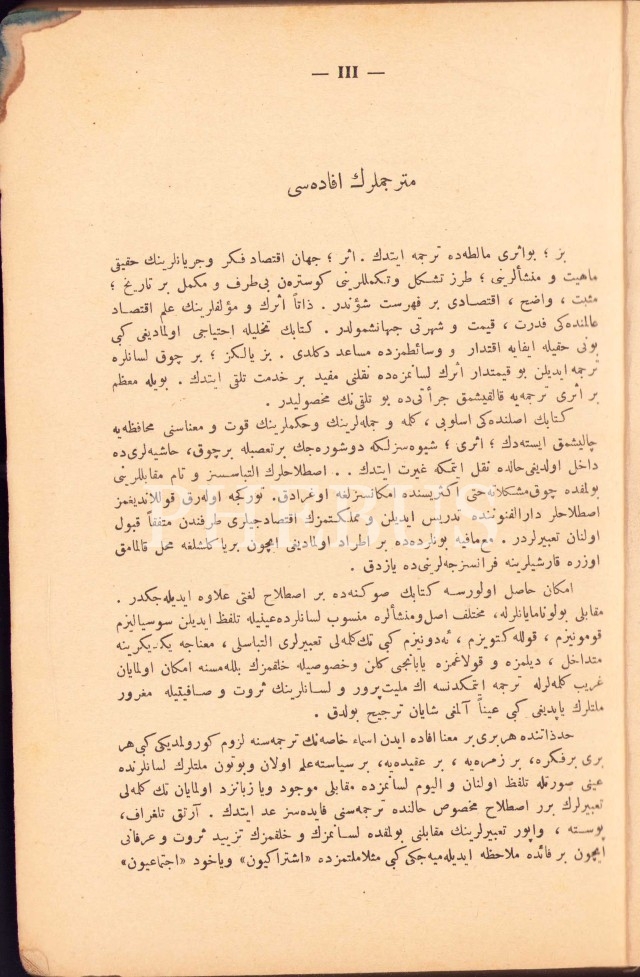 — III —
مترجملرك افاده‌سی
بز ؛ بواثری مالطه‌ده ترجمه ایتدك . اثر ؛ جهان اقتصاد فكر وجریانلرینك حقیقی
ماهیت و منشألرینی ؛ طرز تشكل وتكمللرینی كوسترەن بی‌طرف و مكمل بر تاریخ ؛
مثبت ، واضح ، اقتصادی بر فهرست شؤندر . ذاتاً اثرك و مؤلفلرینك علم اقتصاد
عالمنده‌كی قدرت ، قیمت و شهرتی جهانشمولدر . كتابك تحلیله احتیاجی اولمادیغی كبی
بونی حقیله ایفایه اقتدار و وسائطمزده مساعد دكلدی . بز یالكز ؛ بر چوق لسانلره
ترجمه ایدیلن بو قیمتدار اثرك لسانمزه‌ده نقلنی مفید بر خدمت تلقی ایتدك . بویله معظم
بر اثری ترجمه‌یه قالقیشمق جرأتی‌ده بو تلقی‌نك محصولیدر .
كتابك اصلنده‌كی اسلوبی ، كلمه و جمله‌لرینك وحكملرینك قوت و معناسنی محافظه‌یه
چالیشمق ایسته‌دك ؛ اثری ؛ شیوه‌سزلكه دوشوره‌جك برتعصبله برچوق ، حاشیه‌لری‌ده
داخل اولدیغی‌حالده نقل ایتمكه غیرت ایتدك . . اصطلاحلرك التباسسز و تام مقابللرینی
بولمقده چوق‌مشكلاته‌حتی اكثریسنده امكانسزلغه اوغرادق. توركجه اوله‌رق قوللاندیغمز
اصطلاحلر دارالفنوننده تدریس ایدیلن و مملكتمزك اقتصادجیلری طرفندن متفقاً قبول
اولنان تعبیرلردر . مع‌مافیه بونلرده‌ده بر اطراد اولمادیغی ایچون بریاكلشلغه محل قالمامق
اوزره قارشیلرینه فرانسزجه‌لرینی‌ده یازدق .
امكان حاصل اولورسه كتابك صوكنه‌ده بر اصطلاح لغتی علاوه ایدیله‌جكدر .
مقابلی بولونامایانلرله، مختلف اصل‌ومنشألره منسوب لسانلرده‌عینیله تلفظ ایدیلن سوسیالیزم
قومونیزم ، قوللەكتویزم ، ئەدونیزم كبی تك‌كلمه‌لی تعبیرلری التباسلی ، معناجه یكدیكرینه
متداخل ، دیلمزه و قولاغمزه یابانجی كلن وخصوصیله خلقمزك بللەمسنه امكان اولمایان
غریب كلمه‌لرله ترجمه ایتمكدنسه اك ملیت‌پرور و لسانلرینك ثروت و صافیتیله مغرور
ملتلرك یاپدیغی كبی عیناً آلمغی شایان ترجیح بولدق .
حدذاتنده هربری بر معنا افاده ایدن اسماء خاصه‌نك ترجمه‌سنه لزوم كورولمدیكی كبی هر
بری برفكره، بر زمره‌یه ، بر عقیده‌یه، بر سیاسته‌علم اولان وبوتون ملتلرك لسانلرنده
عینی صورتله تلفظ اولنان و الیوم لسانمزده مقابلی موجود ویا زبانزد اولمایان تك كلمه‌لی
تعبیرلرك برر اصطلاح مخصوص حالنده ترجمه‌سنی فایده‌سز عد ایتدك . آرتق تلغراف،
پوسته ، واپور تعبیرلرینك مقابلنی بولمقده لسانمزك و خلقمزك تزیید ثروت و عرفانی
ایچون بر فائده ملاحظه ایدیله‌میه‌جكی كبی مثلاملتمزده «اشتراكیون» ویاخود «اجتماعیون»
PHEBUS